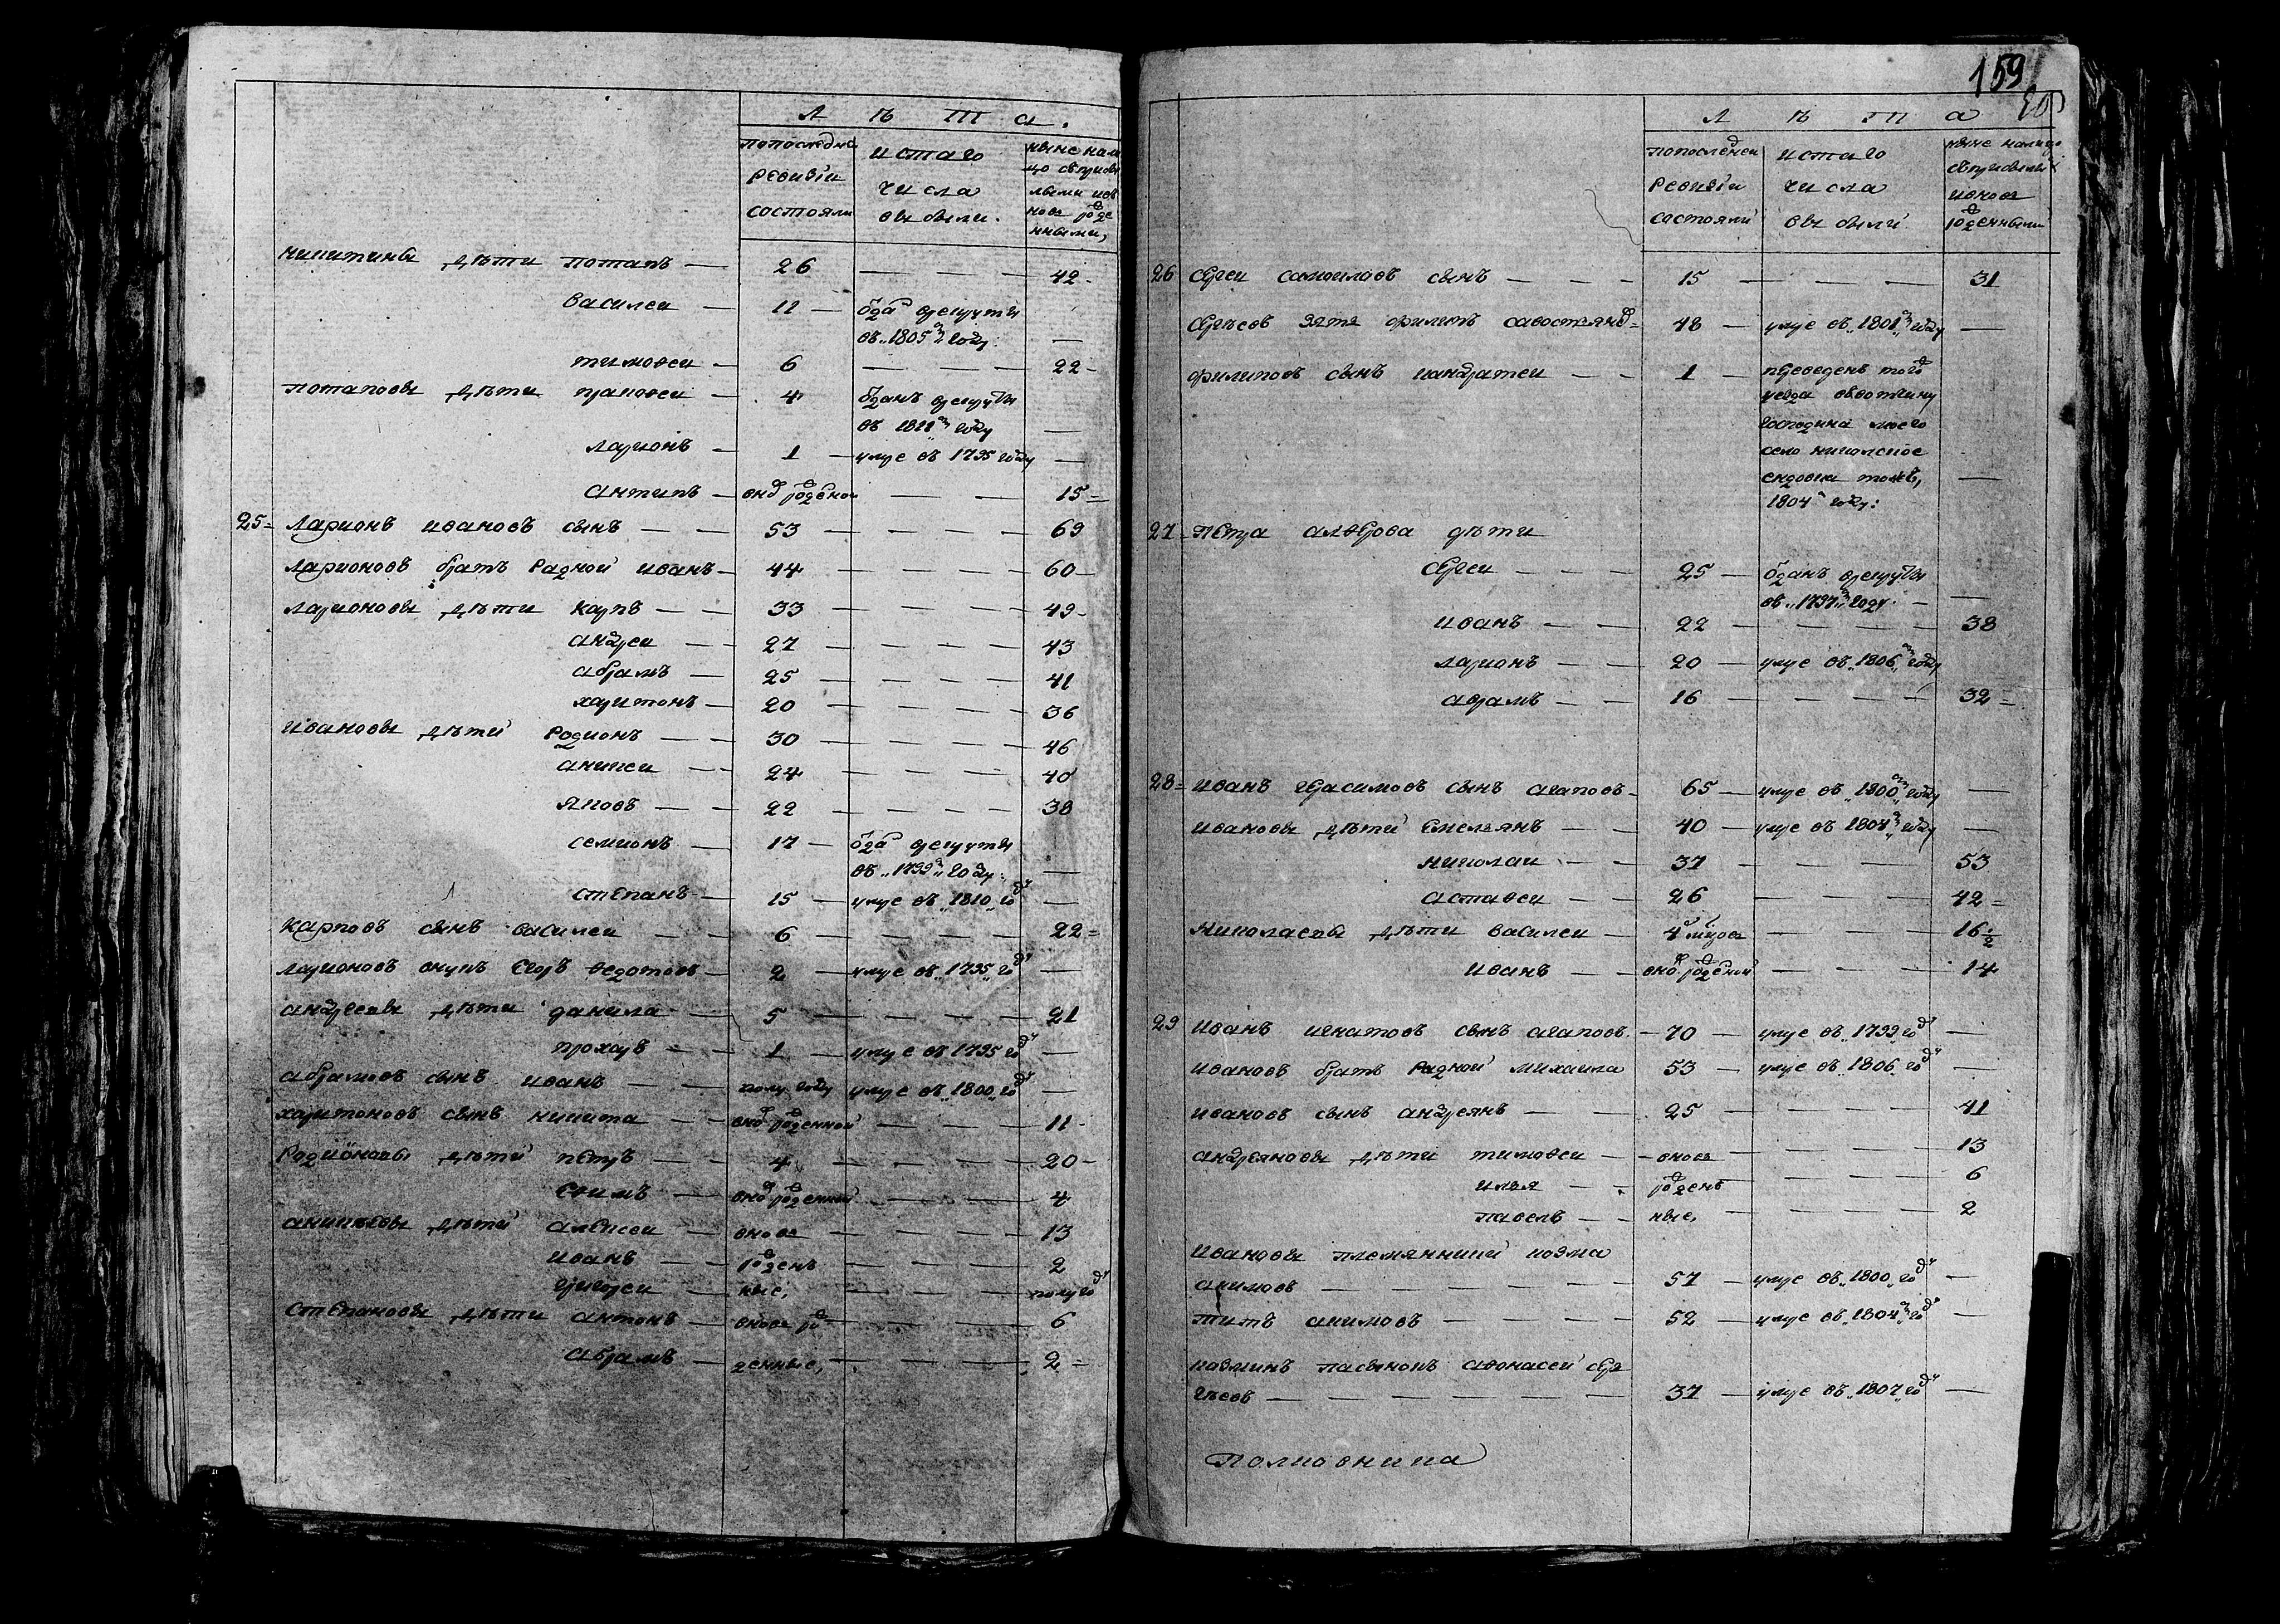 Л ѣ т а .
попоследней ревизiи состояли
истаго числа выбыли .
ныне налицо
никитины дѣти потапъ — 26 — — — 42
василеи — 11 — ѡда врекруты
въ 1805м году —
тимофеи — 6 — — — 22
потаповы дѣти пракофеи — 4 ѡданъ врекруты
въ 1811м году —
ларионъ — 1 — умре въ 1795 году —
антипъ — — — 15
25 Ларионъ ивановъ сынъ — — 53 — — — 69
Ларионовъ братъ Радной иванъ — 44 — — — 60
ларионовы дѣти карпъ — — 33 — — — 49
андреи — — 27 — — — 43
абрамъ — 25 — — — 41
харитонъ — 20 — — — 36
ивановы дѣти Родионъ — — 30 — — — 46
аникеи — — 24 — — — 40
яковъ — — 22 — — — 38
семионъ — 17 — ѡда врекруты
въ 1799м году —
степанъ — 15 — умре въ 1810 году —
Карповъ сынъ василеи — — 6 — — — 22
ларионовъ внукъ Егоръ федотовъ — 2 — умре въ 1795 году —
андреевы дѣти данила — 5 — — — 21
прохоръ — — 1 — умре въ 1795 году —
абрамовъ сынъ иванъ — — полу году умре въ 1800 году —
харитоновъ сынъ никита — — вновь рожденной — — — 11
Родионовы дѣти петръ — — 4 — — — 20
Ефимъ — вновь рожденной — — — 4
аникѣевы дѣти алексеи — вновь — — — 13
иванъ — — рожден — — — 2
григореи — ные, — — — полугоду
Степановы дѣти антонъ — вновь рож — — — 6
абрамъ — денные, — — — 2
159
Л ѣ т а
попоследнеи ревизiи состояли
истаго числа выбыли
ныне налицо
26 Сергеи самоиловъ сынъ — — — 15 — — — 31
Сергѣевъ зятя филипъ савостьяновъ 48 — умре въ 1801м году —
филиповъ сынъ кандратеи — — 1 — преведенъ тогож
уезда ввотчину
господина моего
село никольское
ендовка тожъ, —
1804м году:
27 Петра алферова дѣти
Сергеи — — — 25 — ѡданъ врекруты
въ 1797м году —
иванъ — — 22 — — — 38
ларионъ — — 20 — умре въ 1806м году
аврамъ — — 16 — — — 32
28 иванъ герасимовъ сынъ агаповъ — 65 — умре въ 1800м году —
ивановы дѣти Емельянъ — — 40 — умре въ 1804м году —
николаи — — 37 — — — 53
астафеи — — 26 — — — 42
николаевы дѣти василеи — 4 мцовъ — — — 16 1/2
иванъ — — вновь рожденной — — — 14
29 Иванъ игнатовъ сынъ агаповъ — 70 — умре въ 1799 году —
ивановъ братъ Радной михаила 53 — умре въ 1806 году —
ивановъ сынъ андреянъ — — 25 — — — 41
андреяновы дѣти тимофеи — — вновь — — — 13
илья — — рожден — — — 6
павелъ — — ные, — — — 2
ивановы племянники козма
акимовъ — — — — 57 — умре въ 1800 году —
титъ акимовъ — — — — 52 — умре въ 1804м году —
казминъ пасынокъ афонасеи сер
геевъ — — — — — 37 — умре въ 1807 году —
Полковника